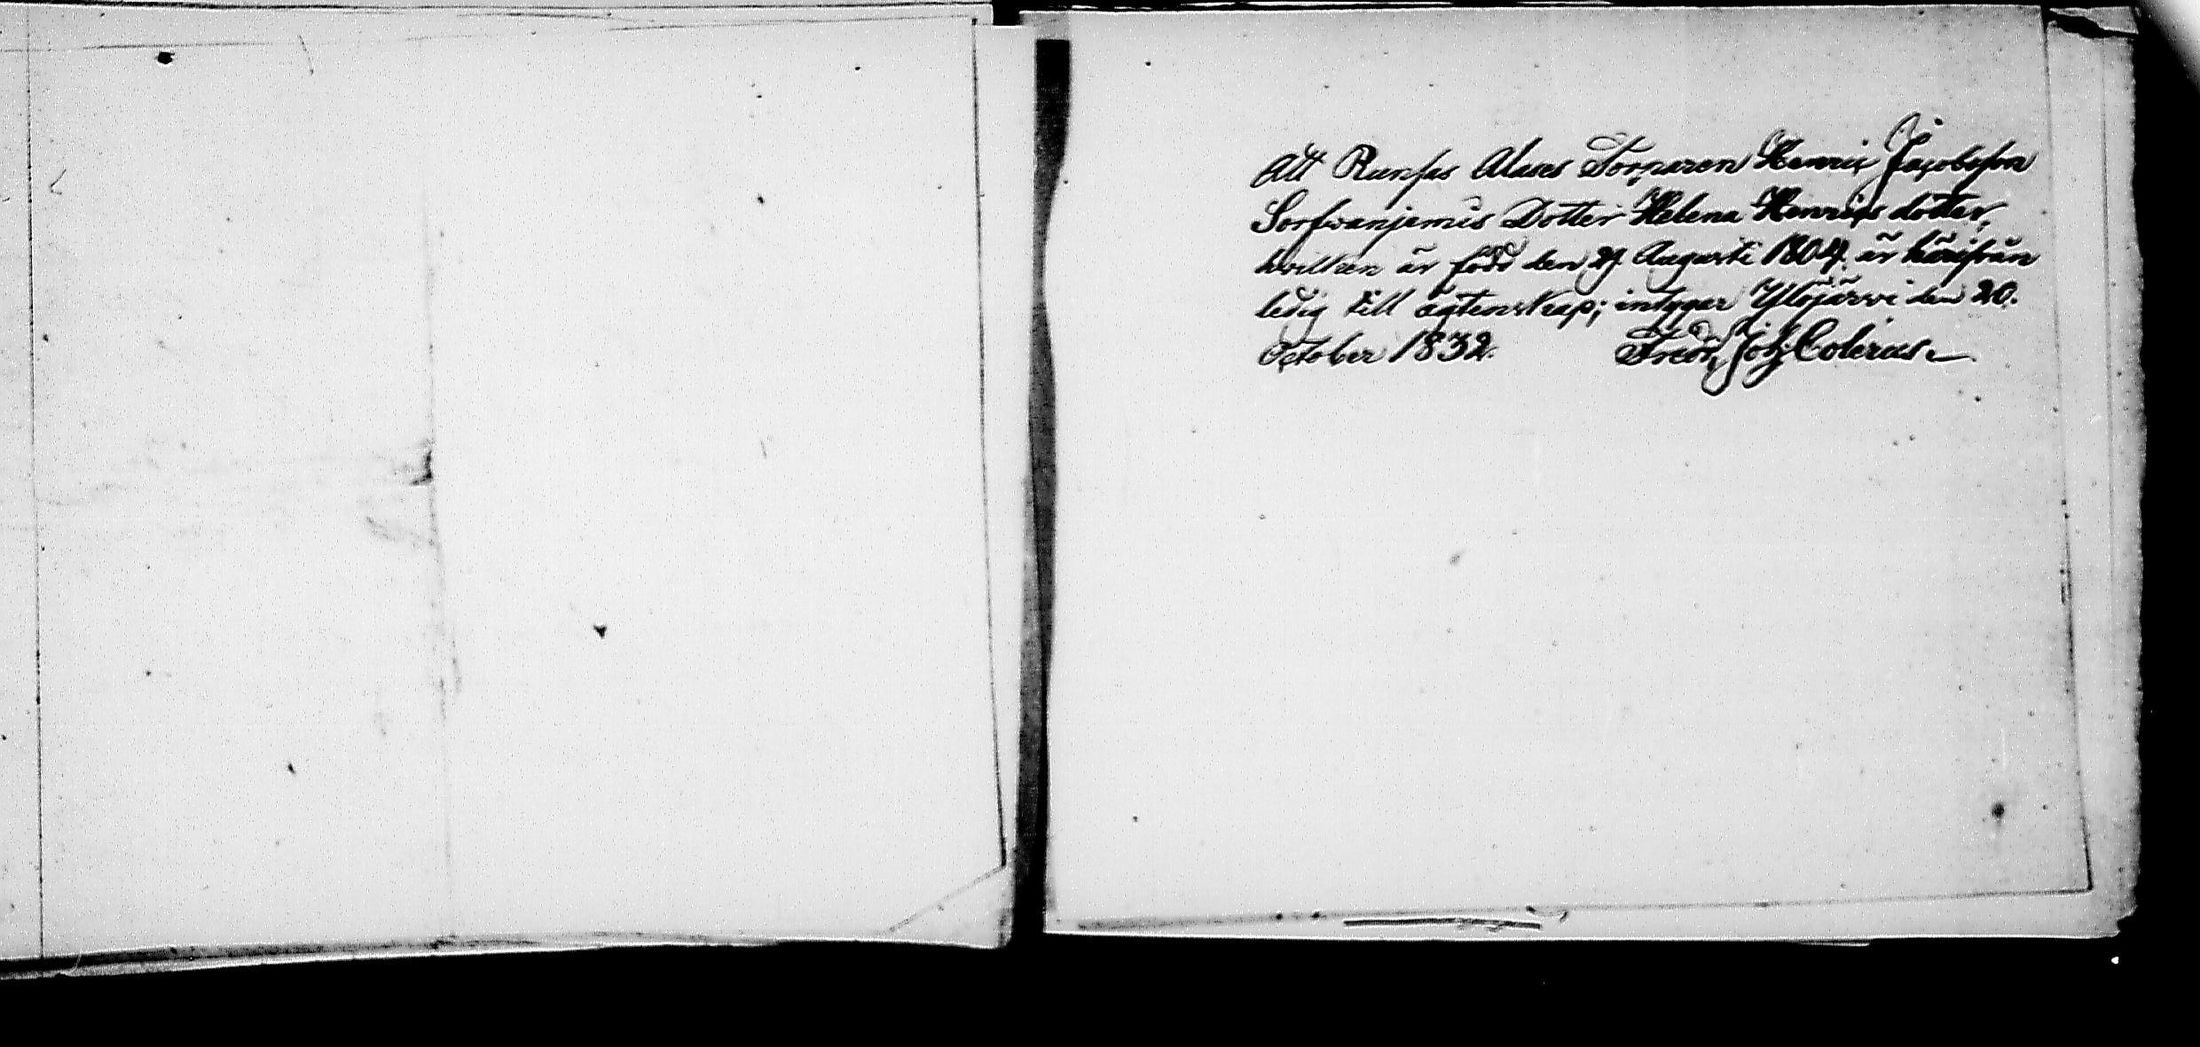 Att Runsas Alases Torparen Henric Jacobsson
Sorfwanjemis Dotter Helena Henrics dotter,
hvilken är född den 27 Augusti 1804. är härifrån
ledig till ägtenskap; intygar Ylöjärwi den 20.
October 1832. Fredr. Joh. Colerus